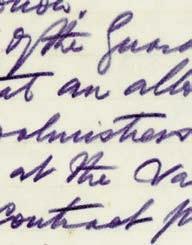 of the Guard
at an allo
oolmistress
at the Va
contract p